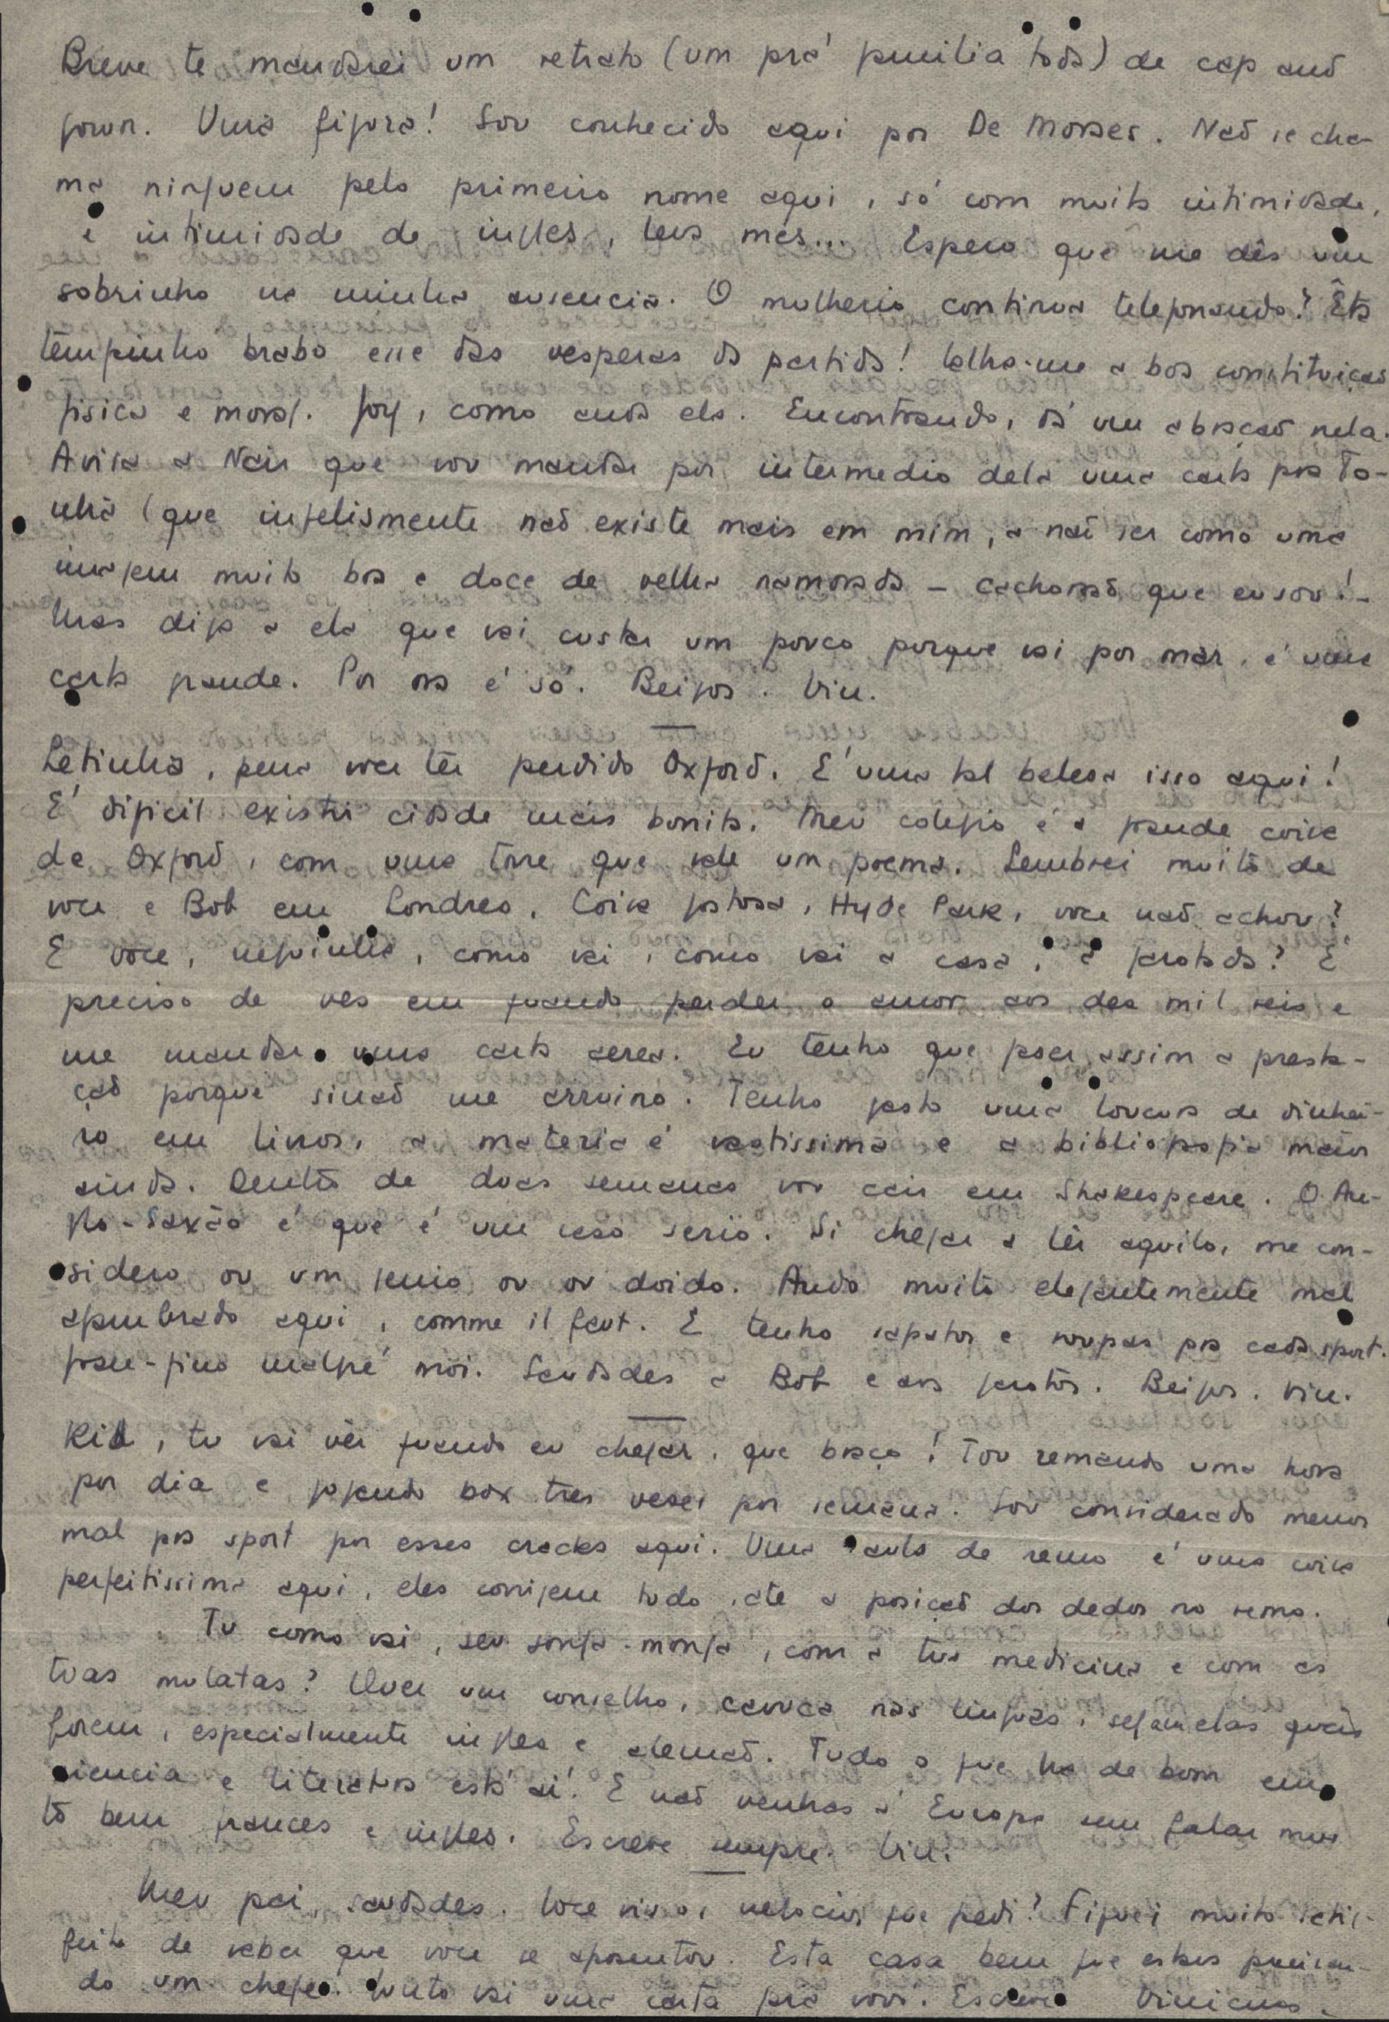 Breve te mandarei um retrato (um prá familia toda) de cap and
gown. Uma figura! Sou conhecido aqui por De Moraes. Não se cha-
ma ninguem pelo primeiro nome aqui, só com muita intimidade,
e intimidade de ingles, leva mês... Espero que me dês um
sobrinho na minha ausencia. O mulherio continua telefonando? Êta
tempinho brabo esse das vesperas da partida! Valha-me a boa constituição
fisica e moral. Joy, como anda ela. Encontrando, dá um abração nela.
Avisa a Nair que vou mandar por intermedio dela uma carta pra To-
nha (que infelismente não existe mais em mim, a não ser como uma
imagem muito boa e doce de velha namorada – cachorrão que eu sou! –
Mas diga a ela que vai custar um pouco porque vai por mar, é uma
carta grande. Por ora é só. Beijos. Vin.
Letinha, pena voce têr perdido Oxford. E' uma tal belesa isso aqui!
E' dificil existir cidade mais bonita. Meu colegio é a grande coisa
de Oxford, com uma torre que vale um poema. Lembrei muito de
voce e Bob em Londres. Coisa gostosa, Hyde Park, voce não achou?
E voce, neguinha, como vai, como vai a casa, a garotada? É
preciso de ves em quando perder o amor aos dez mil reis e
me mandar uma carta aerea. Eu tenho que fazer assim a presta-
ção porque sinão me arruino. Tenho gasto uma loucura de dinhei-
ro em livros, a materia é vastissima e a bibliografia maior
ainda. Dentro de duas semanas vou cair em Shakespeare. O An-
glo-Saxão é que é um caso serio. Si chegar a lêr aquilo, me con-
sidero ou um genio ou ou doido. Ando muito elegantemente mal
ajambrado aqui, comme il faut. E tenho sapatos e roupas pra cada sport.
Gran-fino malgré moi. Saudades a Bob e aos garotos. Beijos. Vin.
Kid, tu vai vêr quando eu chegar, que braço! Tou remando uma hora
por dia e jogando box tres vezes por semana. Sou considerado menos
mal pra sport por esses cracks aqui. Uma aula de remo é uma coisa
perfeitissima aqui, eles corrigem tudo, até a posição dos dedos no remo.
Tu como vai, seu songa-monga, com a tua medicina e com as
tuas mulatas? Quer um conselho, cavuca nas linguas, sejam elas quais
forem, especialmente ingles e alemão. Tudo o que ha de bom em
siencia e literatura está aí! E não venhas á Europa sem falar mui
to bem frances e ingles. Escreve sempre. Vin.
Meu pai, saudades. Voce viu os negocios que pedi? Fiquei muito satis-
feito de saber que voce se aposentou. Esta casa bem que estava precisan-
do um chefe. Junto vai uma carta prá vovó. Escreva Vinicius.